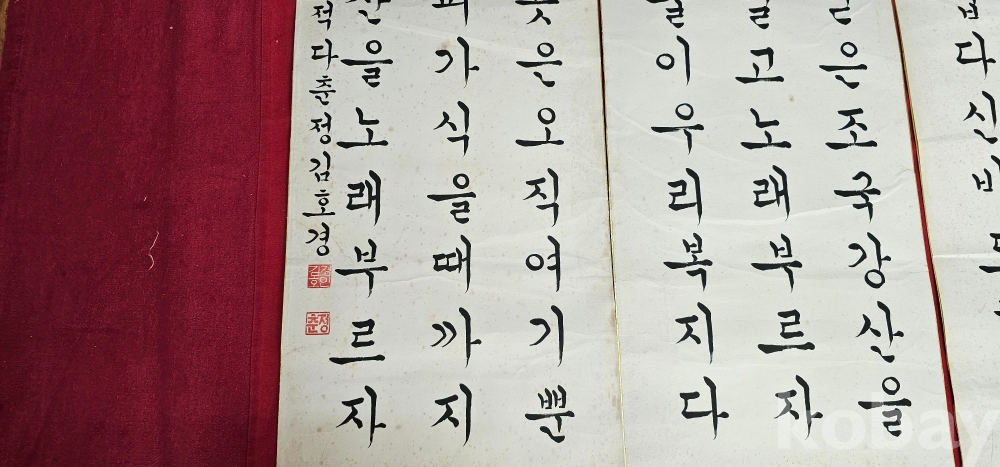 다신비
은조국강산을
고노래부르자
이우리복지다
은오직여기뿐
피가식을때까지
산을노래부르자
적다춘정김호경
춘정
kobay